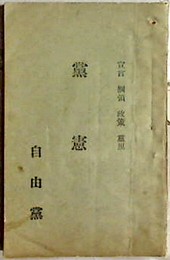 宣言 綱領 政策 黨規
黨憲
自由黨